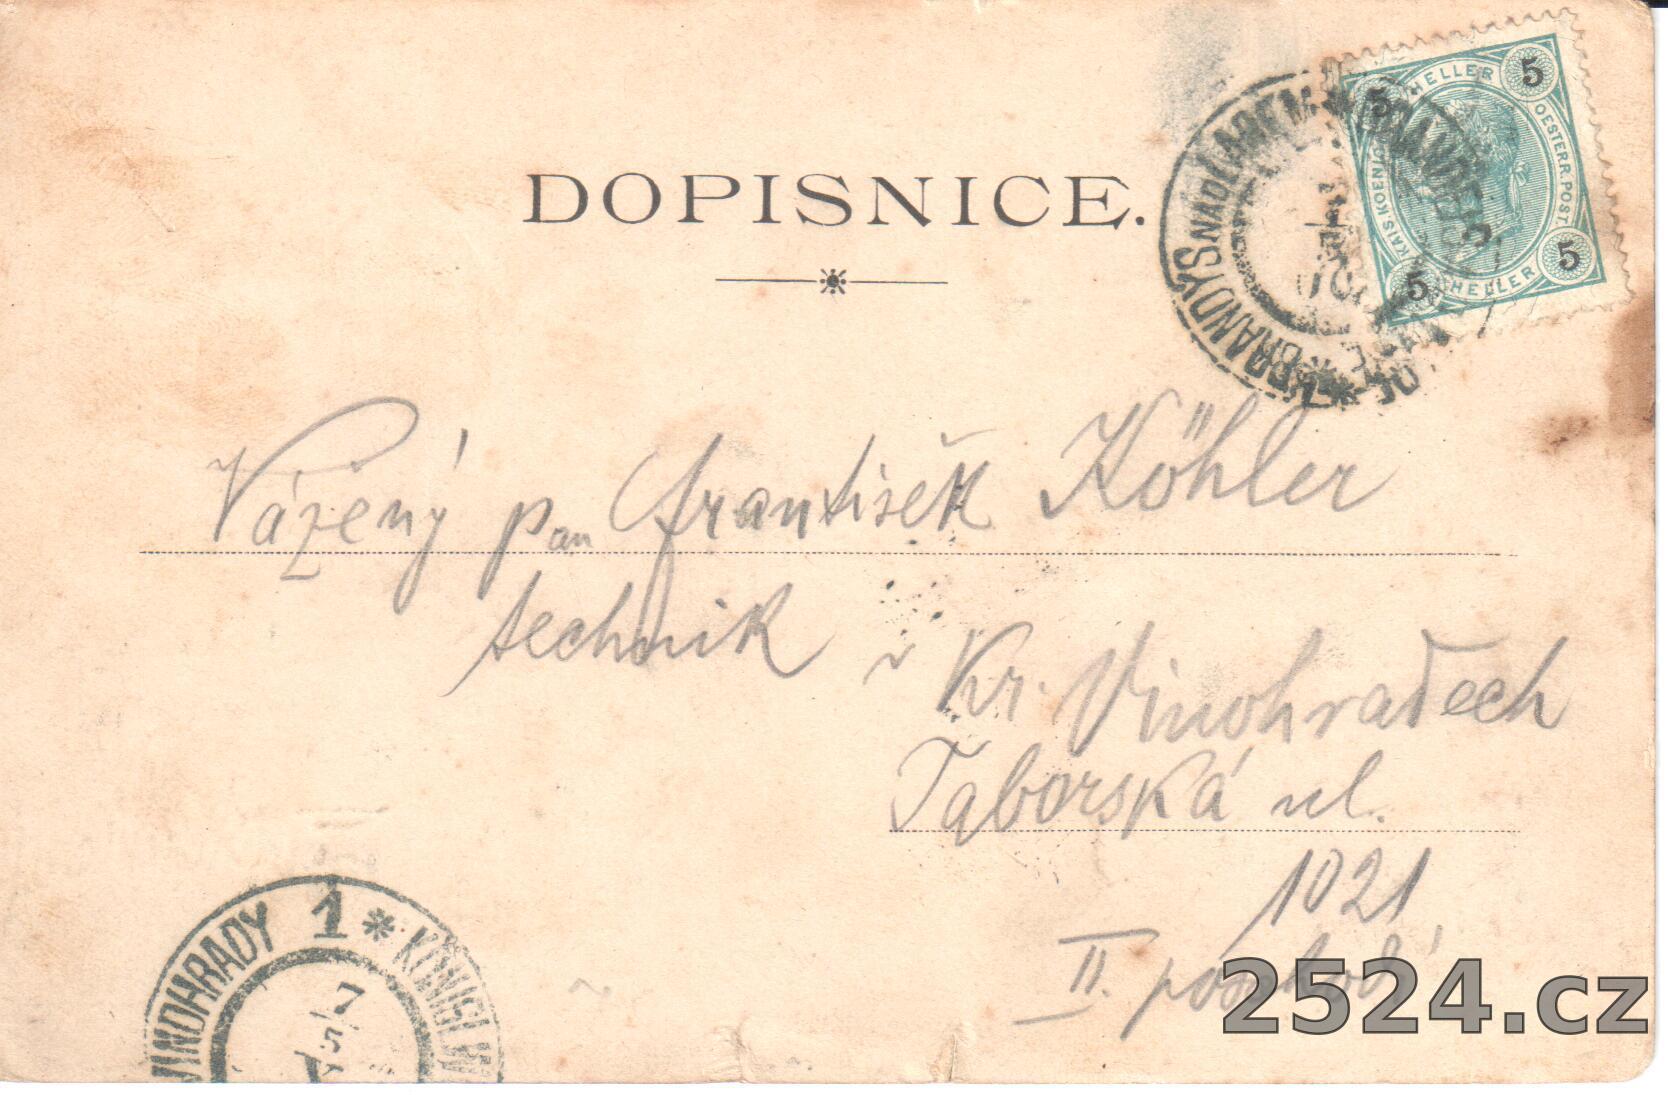 DOPISNICE.
5 HELLER 5
OESTERR.POST
KAIS.KOENIG
5 HELLER 5
BRANDÝS NAD LABEM * BRANDEIS
Vážený pan František Köhler
technik
v Kr. Vinohradech
Táborská ul.
1021
II. poschodí
VINOHRADY 1 *
7
5
2524.cz